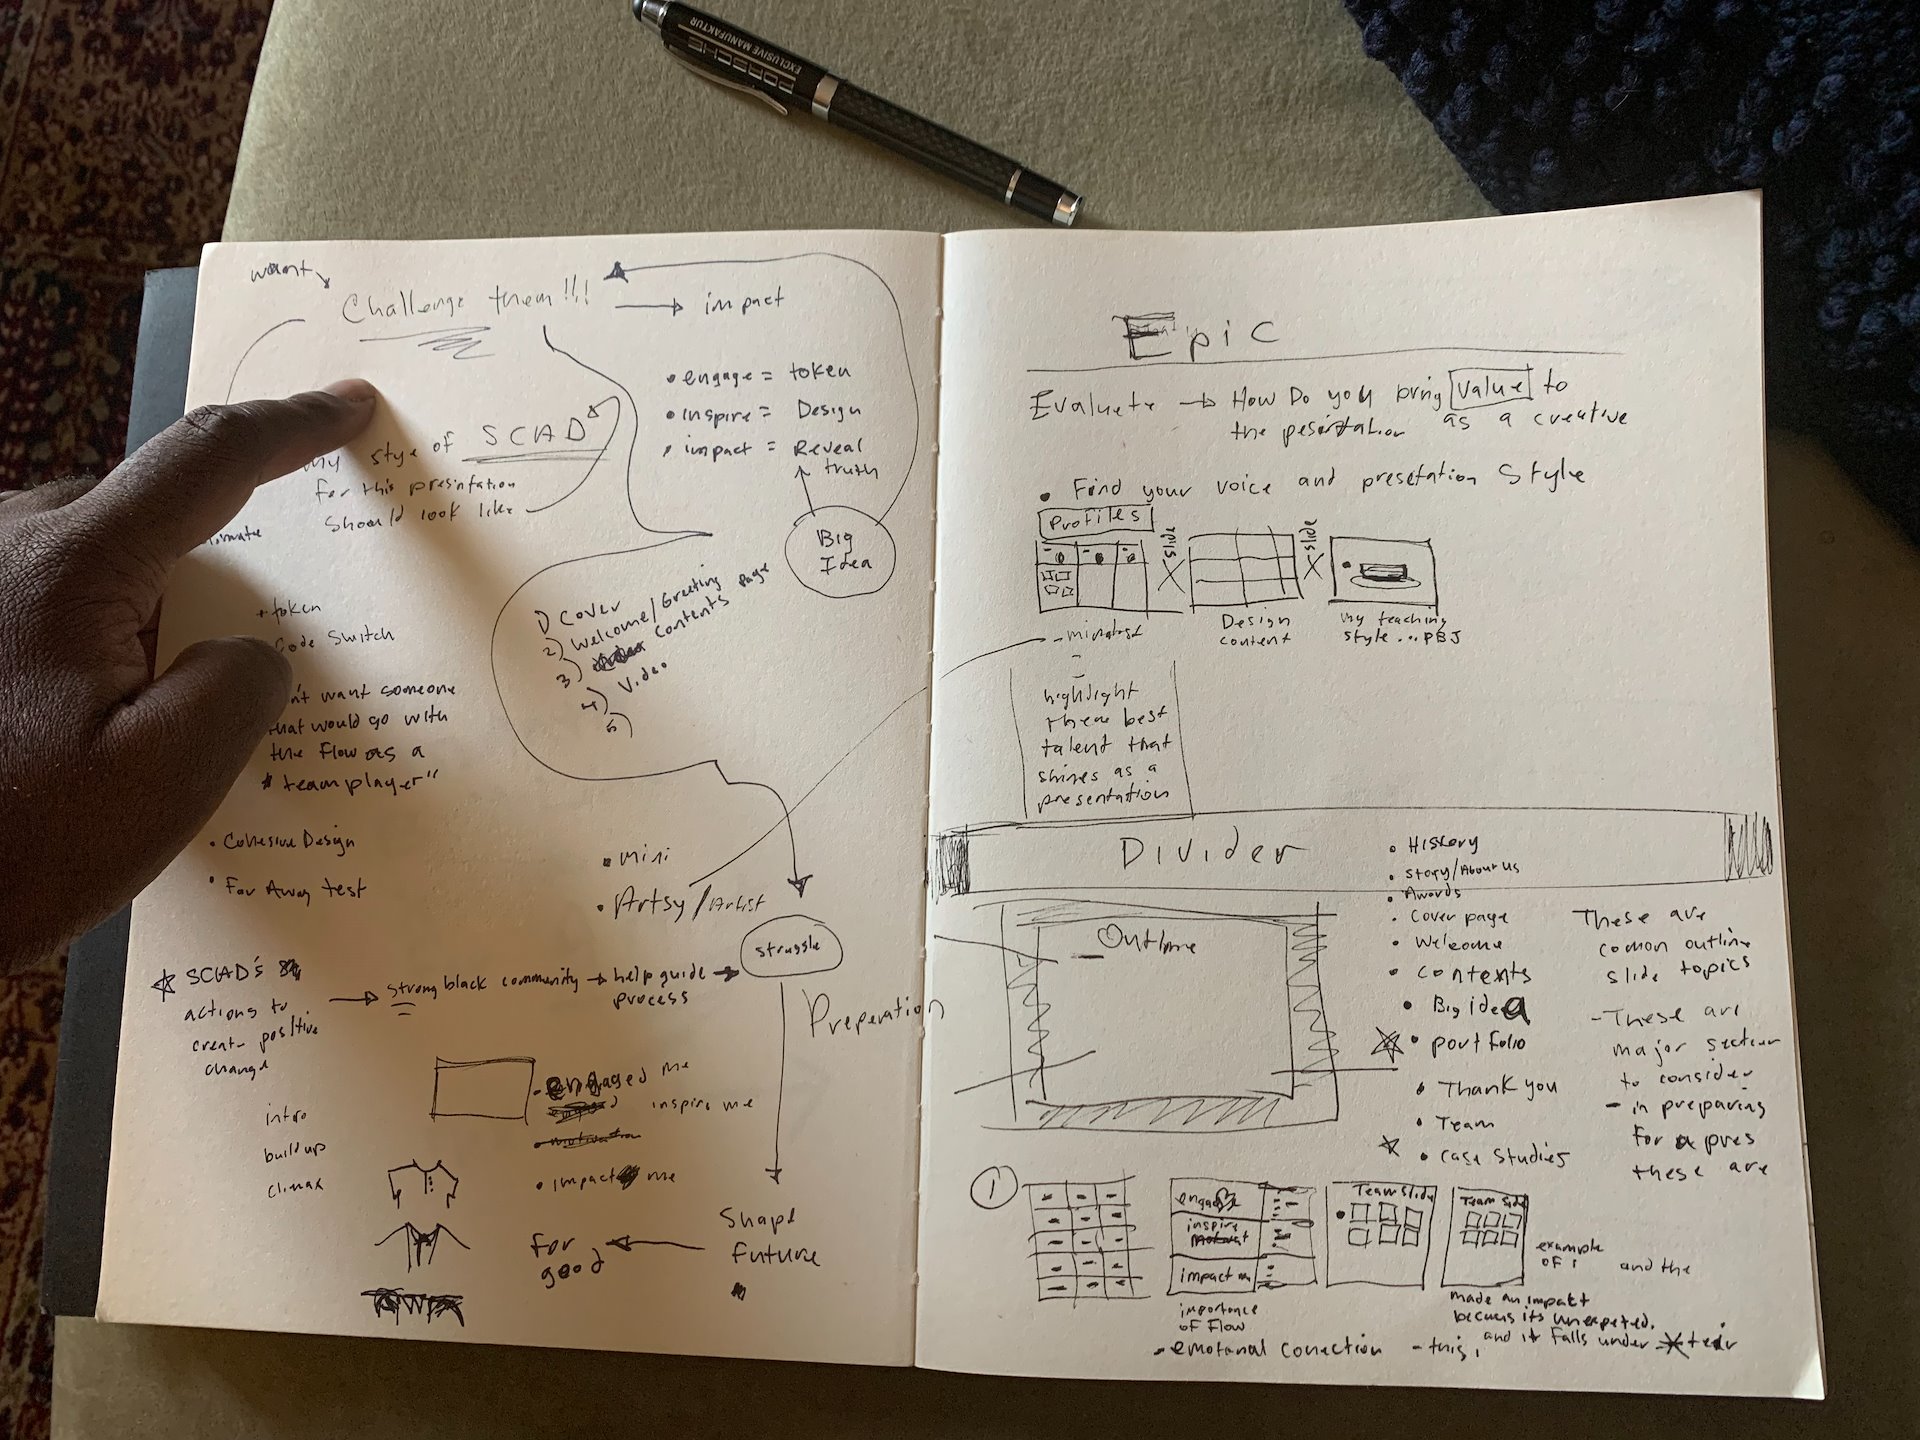 PORSCHE
EXCLUSIVE MANUFAKTUR
want
Challenge them!!!! → impact
• engage = token
• inspire = Design
• impact = Reveal
truth
Big
Idea
my stye of SCAD
for this presintation
Should look like
1) Cover
2) Welcome/Greeting page
3) Contents
4) Video
5)
+ token
Code Switch
n't want someone
that would go with
the Flow as a
"team player"
• Cohesive Design
• Far Away test
• mini
• Artsy/Artist
struggle
☆ SCAD's
actions to
creat positive
change
→ Strong black community → help guide → 
process
Preperation
• engaged me
inspire me
• motivation
• impact me
intro
buildup
climax
Shape
Future
for
good
Epic
Evaluete → How Do you bring value to
the pesintation as a creative
• Find your voice and presetation Style
Profiles
slide
slide
- mindset
Design
content
my teaching
style...PBJ
highlight
best
talent that
shines as a
presentation
Divider
• History
• Story/About us
• Awards
• Cover page
• Welcome
• contents
• Big idea
☆ • portfolio
• Thank you
• Team
☆ • case studies
Outline
These are
comon outline
slide topics
- These are
major section
to consider
- in preparing
for a pres
these are
1
engage
inspire
impact
Team slide
Team slide
importance
of Flow
example
of 1
and the
made an impakt
becaus its unexpeted.
and it falls under
• emotanal conection - this,